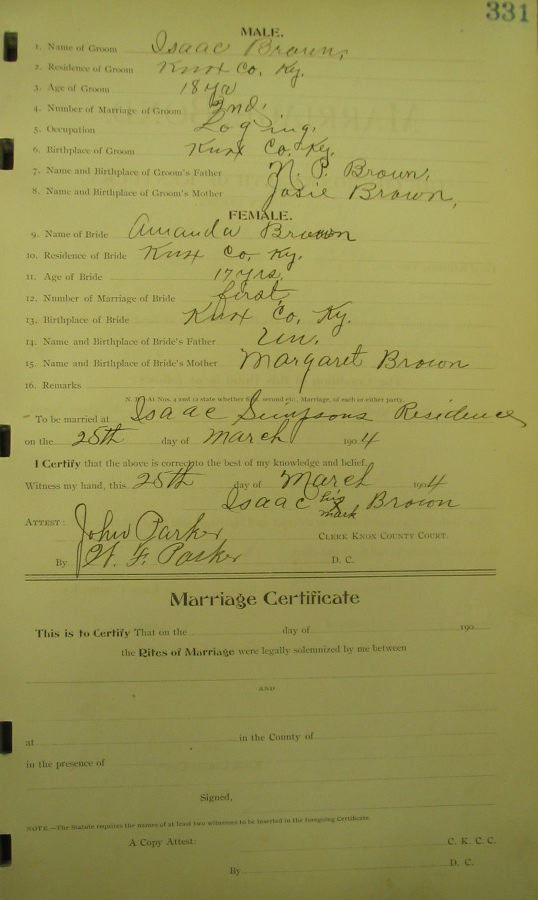 331
MALE.
1. Name of Groom Isaac Brown,
2. Residence of Groom Knox Co, Ky.
3. Age of Groom 18 yrs
4. Number of Marriage of Groom 2nd.
5. Occupation Loging.
6. Birthplace of Groom Knox Co. Ky.
7. Name and Birthplace of Groom's Father N. P. Brown,
8. Name and Birthplace of Groom's Mother Josie Brown,
FEMALE.
9. Name of Bride Amanda Brown
10. Residence of Bride Knox Co, Ky.
11. Age of Bride 17 yrs,
12. Number of Marriage of Bride first,
13. Birthplace of Bride Knox Co, Ky.
14. Name and Birthplace of Bride's Father Un.
15. Name and Birthplace of Bride's Mother Margaret Brown
16. Remarks
N. B. At Nos. 4 and 12 state whether first, second etc., Marriage, of each or either party.
To be married at Isaac Simpsons Residence
on the 25th day of March 1904
I Certify that the above is correct to the best of my knowledge and belief.
Witness my hand, this 25th day of March 1904
Isaac his X mark Brown
ATTEST: John Parker CLERK KNOX COUNTY COURT.
By W. F. Parker D. C.
Marriage Certificate
This is to Certify That on the day of 190
the Rites of Marriage were legally solemnized by me between
AND
at in the County of
in the presence of
Signed,
NOTE.—The Statute requires the names of at least two witnesses to be inserted in the foregoing Certificate.
A Copy Attest: C. K. C. C.
By D. C.